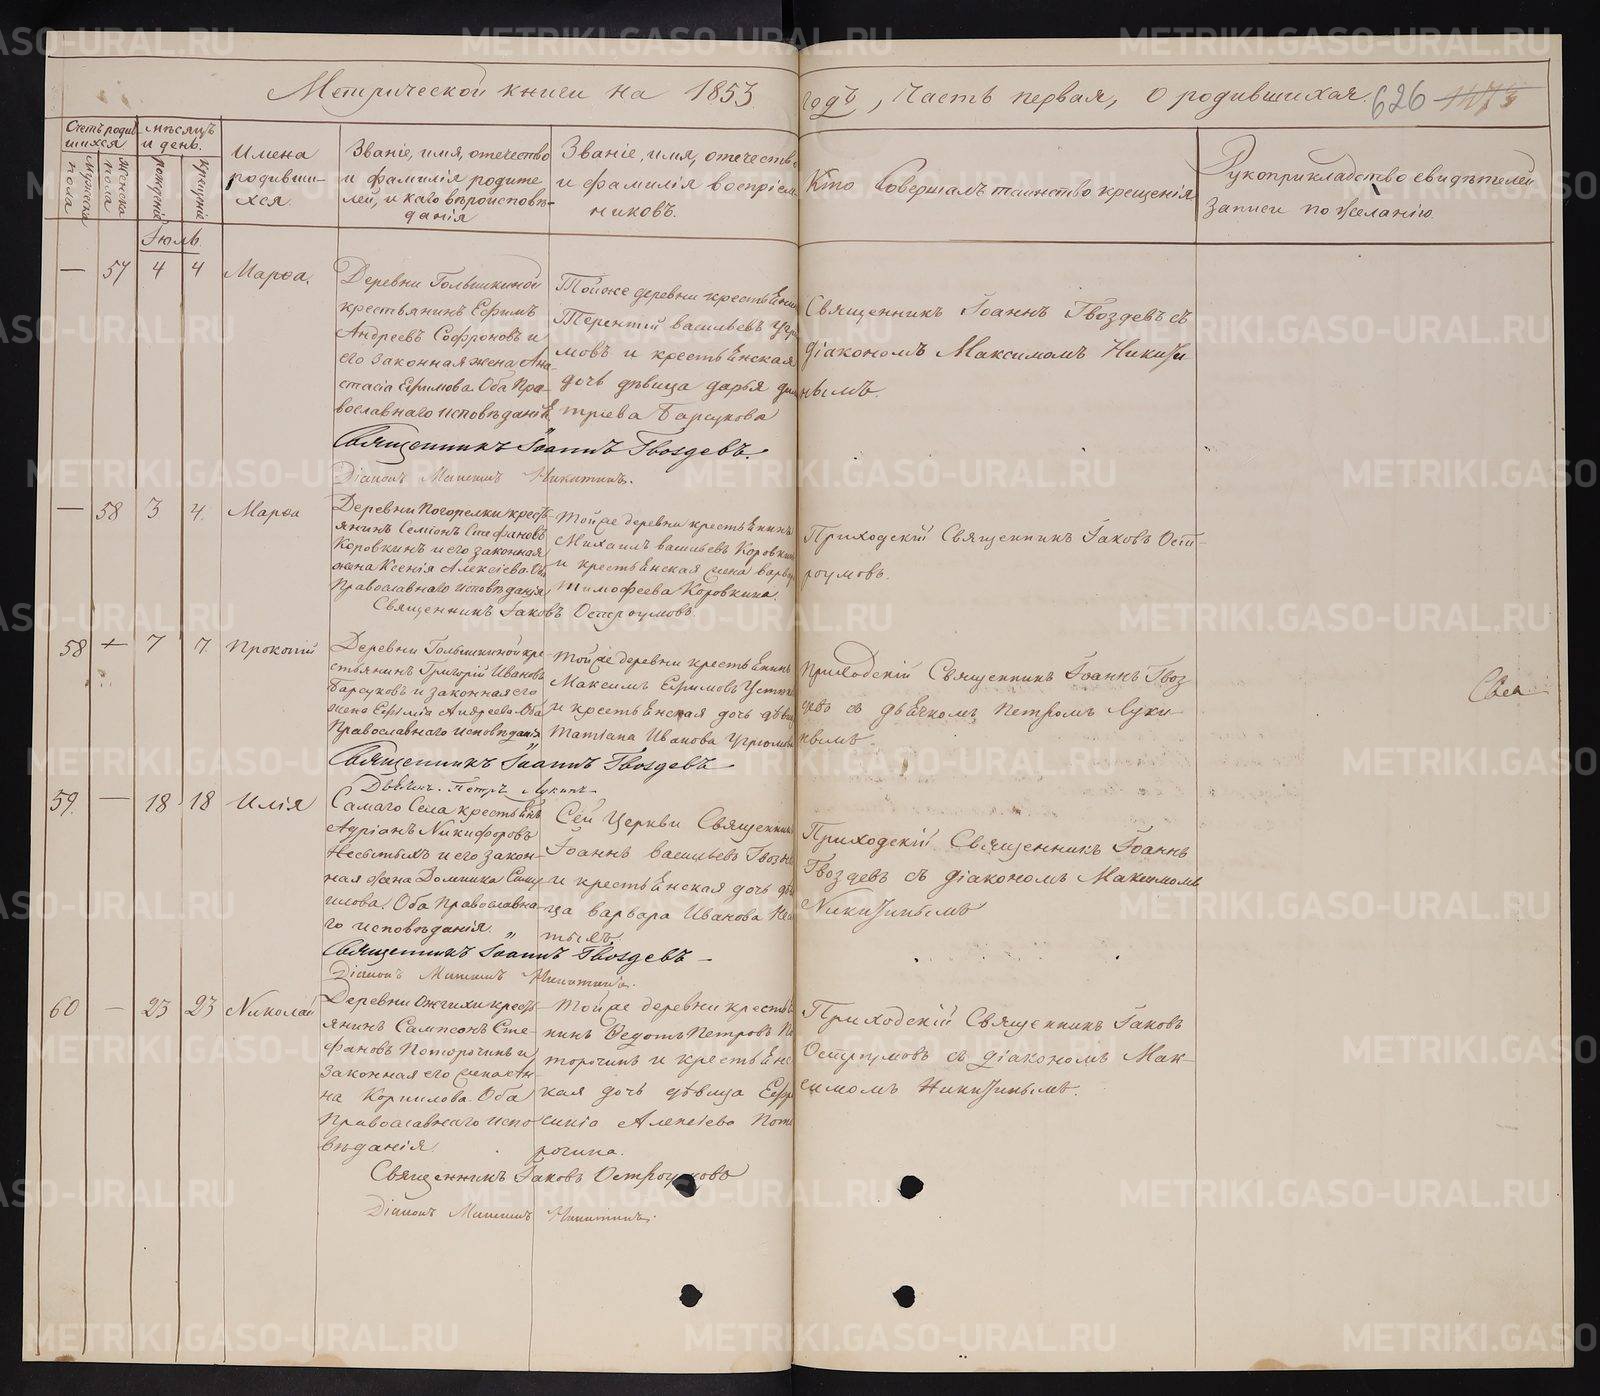 Метрической книги на 1853 годъ, Часть первая, о родившихся. 626
Счетъ родившихся
мѣсяцъ и день.
Имена родившихся
Званіе, имя, отечество и фамилія родителей, и какого вѣроисповѣданія
Званіе, имя, отечество и фамилія воспріемниковъ.
Кто Совершалъ таинство крещенія
Рукоприкладство свидѣтелей записи по желанію.
Мужеска пола
Женска пола
рожденія
крещенія
Іюль.
— 57 4 4 Марѳа.
Деревни Голышкиной
крестьянинъ Ефимъ
Андреевъ Софроновъ и
его законная жена Ана-
стасія Ефимова. Оба Пра-
вославнаго исповѣданія
Тойже деревни крестьянинъ
Терентій васильевъ Угрю
мовъ и крестьянская
дочь дѣвица дарья дми
тріева Барсукова
Священникъ Іоаннъ Гвоздевъ съ
діакономъ Максимомъ Никити
нымъ.
Священникъ Іоаннъ Гвоздевъ.
Діаконъ Максимъ Никитинъ.
— 58 3 4. Марѳа
Деревни Погорелки кресть
янинъ Семіонъ Стефановъ
Коровкинъ и его законная
жена Ксенія Алексіева. Оба
Православнаго исповѣданія
Тойже деревни крестьянинъ
Михаилъ васильевъ Коровкинъ
и крестьянская жена варвара
Тимофеева Коровкина.
Приходскій Священникъ Іаковъ Ост-
роумовъ.
Священникъ Іаковъ Остроумовъ.
58 + 7 7. Прокопій
Деревни Голышкиной кре
стьянинъ Григорій Ивановъ
Барсуковъ и законная его
жена Ефимія Андреева. Оба
Православнаго исповѣданія
Тойже деревни крестьянинъ
Максимъ Ефимовъ
и крестьянская дочь дѣвица
Татіана Иванова Угрюмова
Приходскій Священникъ Іоаннъ Гвоз
девъ съ дьячкомъ Петромъ Луки
нымъ.
Свя
Священникъ Іоаннъ Гвоздевъ
Дьячекъ Петръ Лукинъ
59. — 18 18 Илія
Самаго Села крестьянинъ
Адріанъ Никифоровъ
и его закон-
ная жена Домника
Оба Православна-
го исповѣданія.
Сей Церкви Священникъ
Іоаннъ васильевъ Гвоздевъ
и крестьянская дочь дѣви
ца варвара Иванова
тыхъ.
Приходскій Священникъ Іоаннъ
Гвоздевъ съ діакономъ Максимомъ
Никитинымъ
Священникъ Іоаннъ Гвоздевъ
Діаконъ Максимъ Никитинъ.
60 — 23 23 Николай
Деревни кресть
янинъ Сампсонъ Сте-
фановъ Поторочинъ и
законная его жена Ан-
на Корнилова. Оба
Православнаго испо-
вѣданія
Тойже деревни крестья
нинъ Ѳедотъ Петровъ По
торочинъ и крестьянс
кая дочь дѣвица Евфро
синіа Алексіева Пото
рочина.
Приходскій Священникъ Іаковъ
Остроумовъ съ діакономъ Мак-
симомъ Никитинымъ.
Священникъ Іаковъ Остроумовъ
Діаконъ Максимъ Никитинъ.
METRIKI.GASO-URAL.RU